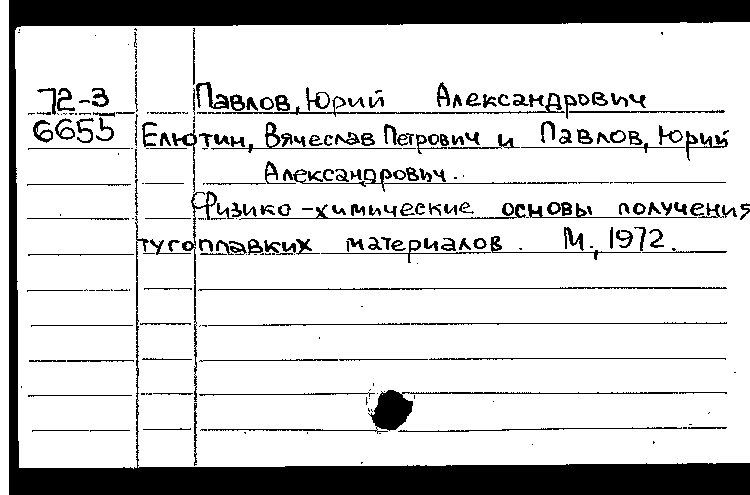 72-3 Павлов, Юрий Александрович
6655 Елютин, Вячеслав Петрович и Павлов, Юрий
Александрович.
Физико-химические основы получения
тугоплавких материалов. М., 1972.